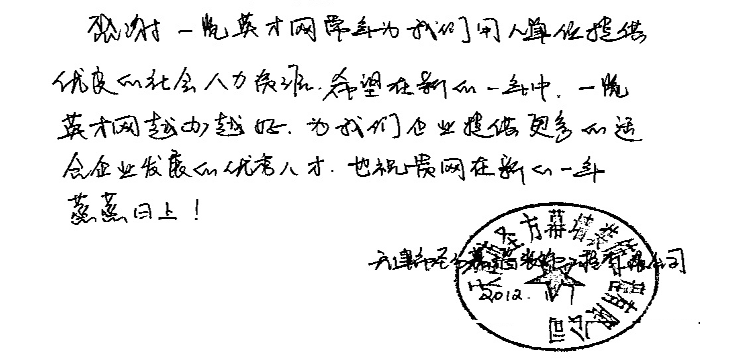 感谢一览英才网常年为我们用人单位提供
优良的社会人力资源.希望在新的一年中,一览
英才网越办越好.为我们企业提供更多的适
合企业发展的优秀人才.也祝贵网在新的一年
蒸蒸日上!
天津 圣方幕墙装饰工程有限公司
2012.1.7